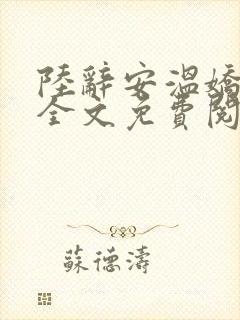 陸辭安溫嬌
全文免費閱
蘇德濤